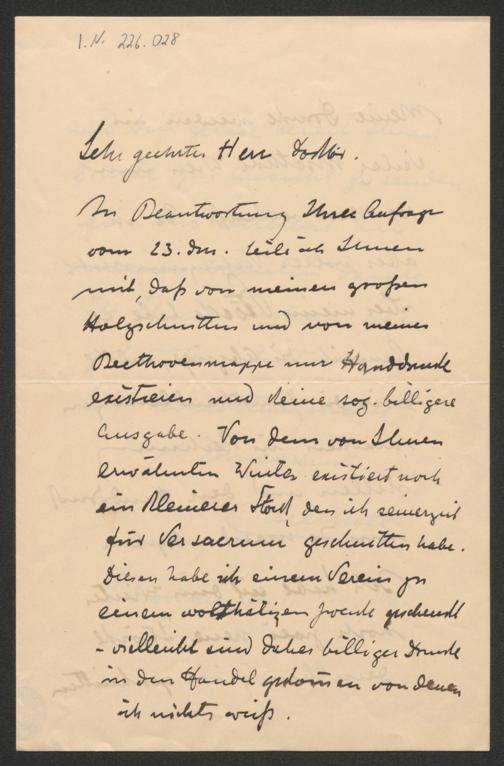 I.N. 226.028
Sehr geehrter Herr Doktor.
In Beantwortung Ihrer Anfrage
vom 23. ds. teile ich Ihnen
mit, daß von meinen großen
Holzschnitten und von meiner
Beethovenmappe nur Handdrucke
existieren und keine sog. billigere
Ausgabe. Von dem von Ihnen
erwähnten Winter existiert noch
ein kleinerer Stock, den ich seinerzeit
für Ver sacrum geschnitten habe.
Diesen habe ich einem Verein zu
einem wolthätigen Zwecke geschenkt
- vielleicht sind daher billige Drucke
in den Handel gekommen von denen
ich nichts weiß.